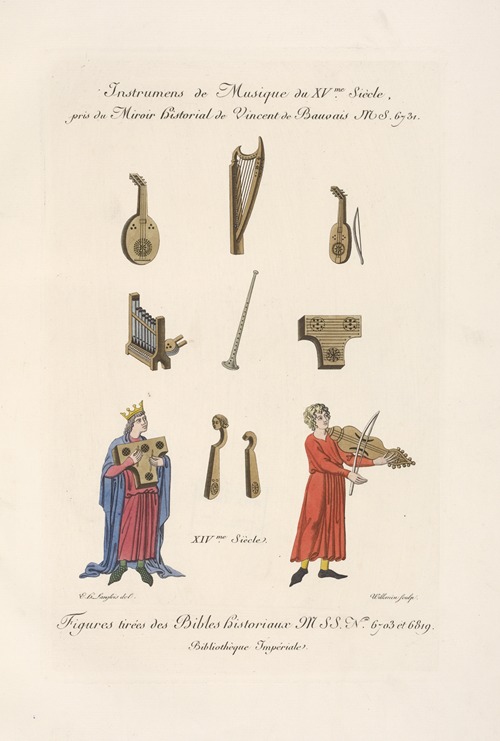 Instrumens de Musique du XV.me Siècle,
pris du Miroir historial de Vincent de Bauvais MS. 6731.
XIV.me Siècle.
E. H. Langlois del.
Willemin sculp.
Figures tirées des Bibles historiaux MSS. N.º 6703 et 6819.
Bibliothèque Impériale.